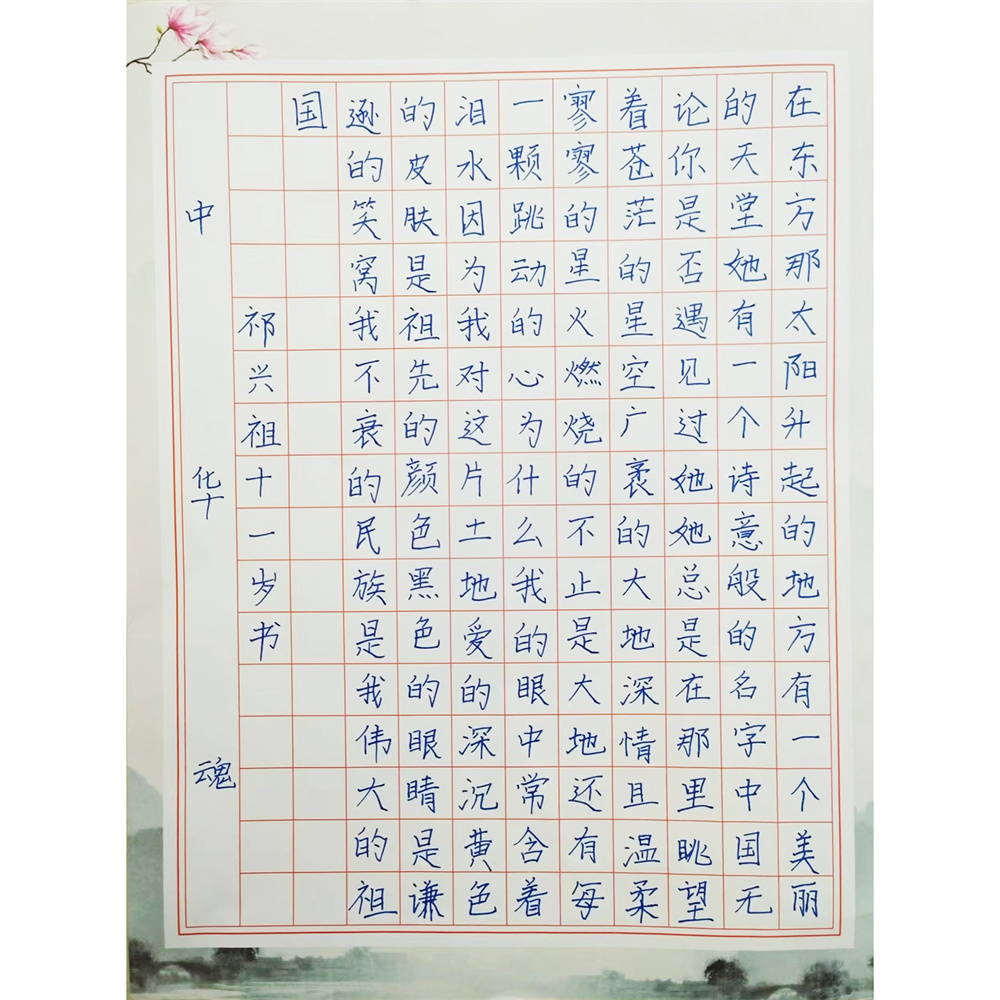 在东方那太阳升起的地方有一个美丽
的天堂她有一个诗意般的名字中国无
论你是否遇见过她她总是在那里眺望
着苍茫的星空广袤的大地深情且温柔
寥寥的星火燃烧的不止是大地还有每
一颗跳动的心为什么我的眼中常含着
泪水因为我对这片土地爱的深沉黄色
的皮肤是祖先的颜色黑色的眼睛是谦
逊的笑窝我不衰的民族是我伟大的祖
国
祁兴祖十一岁书
中华魂